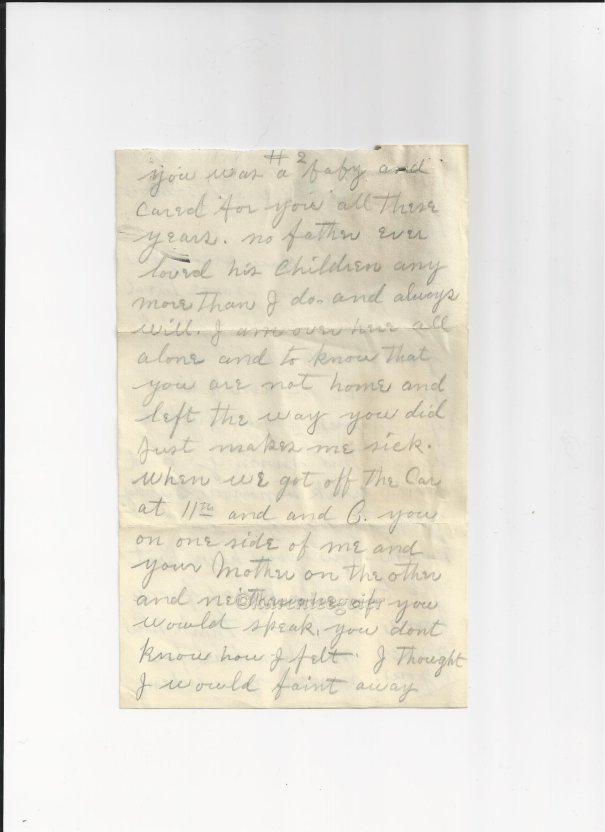 #2
you was a baby and
cared for you all these
years. no father ever
loved his children any
more than I do. and always
will. I am over here all
alone and to know that
you are not home and
left the way you did
Just makes me sick.
when we got off the Car
at 11th and and C. you
on one side of me and
your Mother on the other
and neither one of you
would speak. you dont
know how I felt. I thought
I would faint away